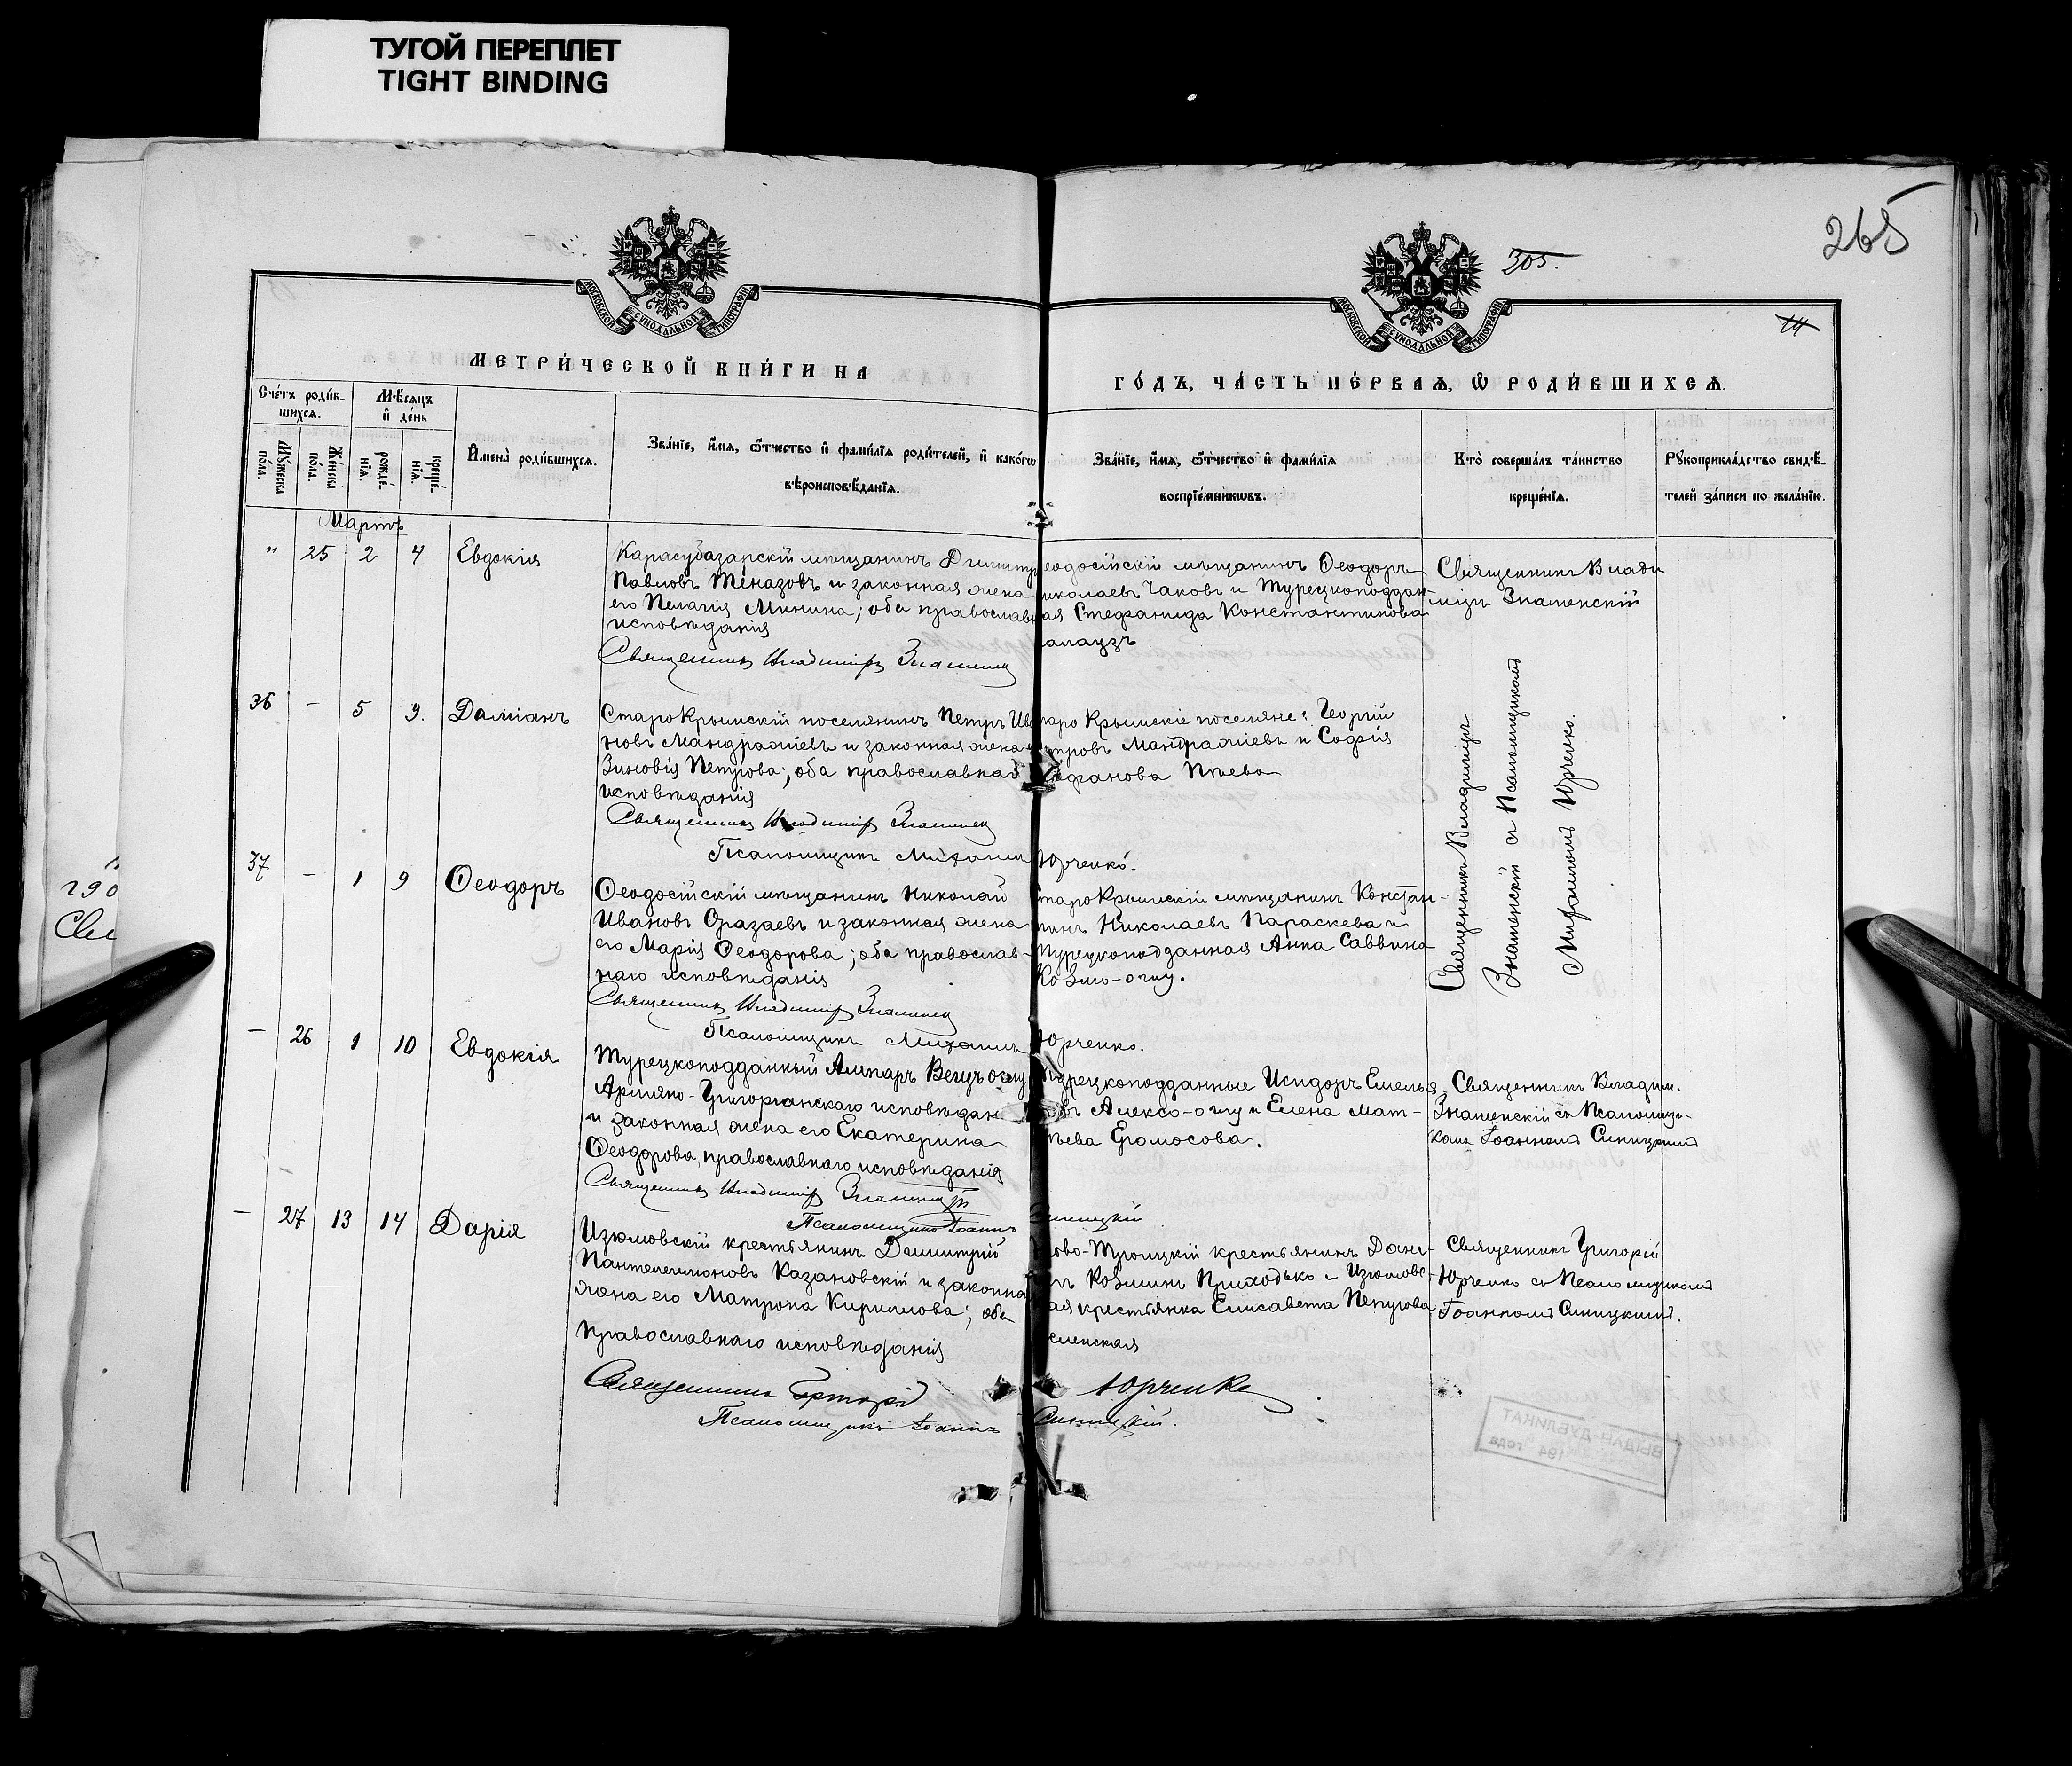 ТУГОЙ ПЕРЕПЛЕТ
TIGHT BINDING
265
305.
14
МОСКОВСКОЙ СУНОДАЛЬНОЙ ТИПОГРАФІИ
МОСКОВСКОЙ СУНОДАЛЬНОЙ ТИПОГРАФІИ
МЕТРИ́ЧЕСКОЙ КНИ́ГИ НА
ГО́ДЪ, ЧА́СТЬ ПЕ́РВАѦ, Ѿ РОДИ́ВШИХСѦ.
Сче́тъ роди́в-
шихсѧ.
Мѣ́сѧцъ
и҆ де́нь
Мꙋ́жеска по́ла.
Же́нска по́ла.
рожде́-
нїѧ.
креще́-
нїѧ.
И҆мена̀ роди́вшихсѧ.
Зва́нїе, и҆́мѧ, ѻ҆́тчество и҆ фами́лїѧ роди́телей, и҆ како́гѡ
вѣроисповѣ́данїѧ.
Зва́нїе, и҆́мѧ, ѻ҆́тчество и҆ фами́лїѧ
воспрїе́мникѡвъ.
Кто̀ соверша́лъ та́инство
креще́нїѧ.
Рꙋкоприкла́дство свидѣ́-
телей за́писи по жела́нїю.
Мартъ
" 25 2 4 Евдокія
Карасубазарскій мѣщанинъ Димитр
Павловъ Теназовъ и законная жена
его Пелагія Минина; оба православн
исповѣданія
Священникъ Владиміръ Знаменск
еодосійскій мѣщанинъ Ѳеодоръ
иколаевъ Чаковъ и Турецкоподдан-
ая Стефанида Константинова
алаузъ
Священникъ Влади
міръ Знаменскій
36 – 5 9. Даміанъ
СтароКрымскій поселянинъ Петръ Ива
новъ Мандражіевъ и законная жена
Зиновія Петрова; оба православнаго
исповѣданія
Священникъ Владиміръ Знаменск
Псаломщикъ Михаилъ Юрченко.
таро Крымскіе поселяне: Георгій
тровъ Мандражіевъ и Софія
ефанова Пѣева
Священникъ Владиміръ
Знаменскій съ Псаломщикомъ
Михаиломъ Юрченко.
37 – 1 9 Ѳеодоръ
Ѳеодосійскій мѣщанинъ Николай
Ивановъ Фазаевъ и законная жена
его Марія Ѳеодорова; оба православ-
наго исповѣданія
Священникъ Владиміръ Знаменск
Псаломщикъ Михаилъ Юрченко.
тароКрымскій мѣщанинъ Констан-
тинъ Николаевъ Параскева и
Турецкоподданная Анна Саввина
Козмо-оглу.
– 26 1 10 Евдокія
Турецкоподданный
Армяно-Григоріанскаго исповѣдан
и законная жена его Екатерина
Ѳеодорова, православнаго исповѣданія
Священникъ Владиміръ Знаменск
Псаломщикъ Іоаннъ Синицкій
Турецкоподданные Исидоръ Емелья
овъ Алексо-оглу и Елена Мат-
ѣева Еромосова.
Священникъ Владим.
Знаменскій съ Псаломщи-
комъ Іоанномъ Синицкимъ
– 27 13 14 Дарія
Изюмовскій крестьянинъ Димитрій
Пантелеимоновъ Казановскій и законна
жена его Матрона Кириллова; оба
православнаго исповѣданія
Священникъ Григорій Юрченко
Псаломщикъ Іоаннъ Синицкій.
ово-Троицкій крестьянинъ Дани-
лъ Козминъ Приходько и Изюмовс-
ая крестьянка Елисавета Петрова
сленская
Священникъ Григорій
Юрченко съ Псаломщикомъ
Іоанномъ Синицкимъ.
ВЫДАН ДУБЛИКАТ
194 года
290